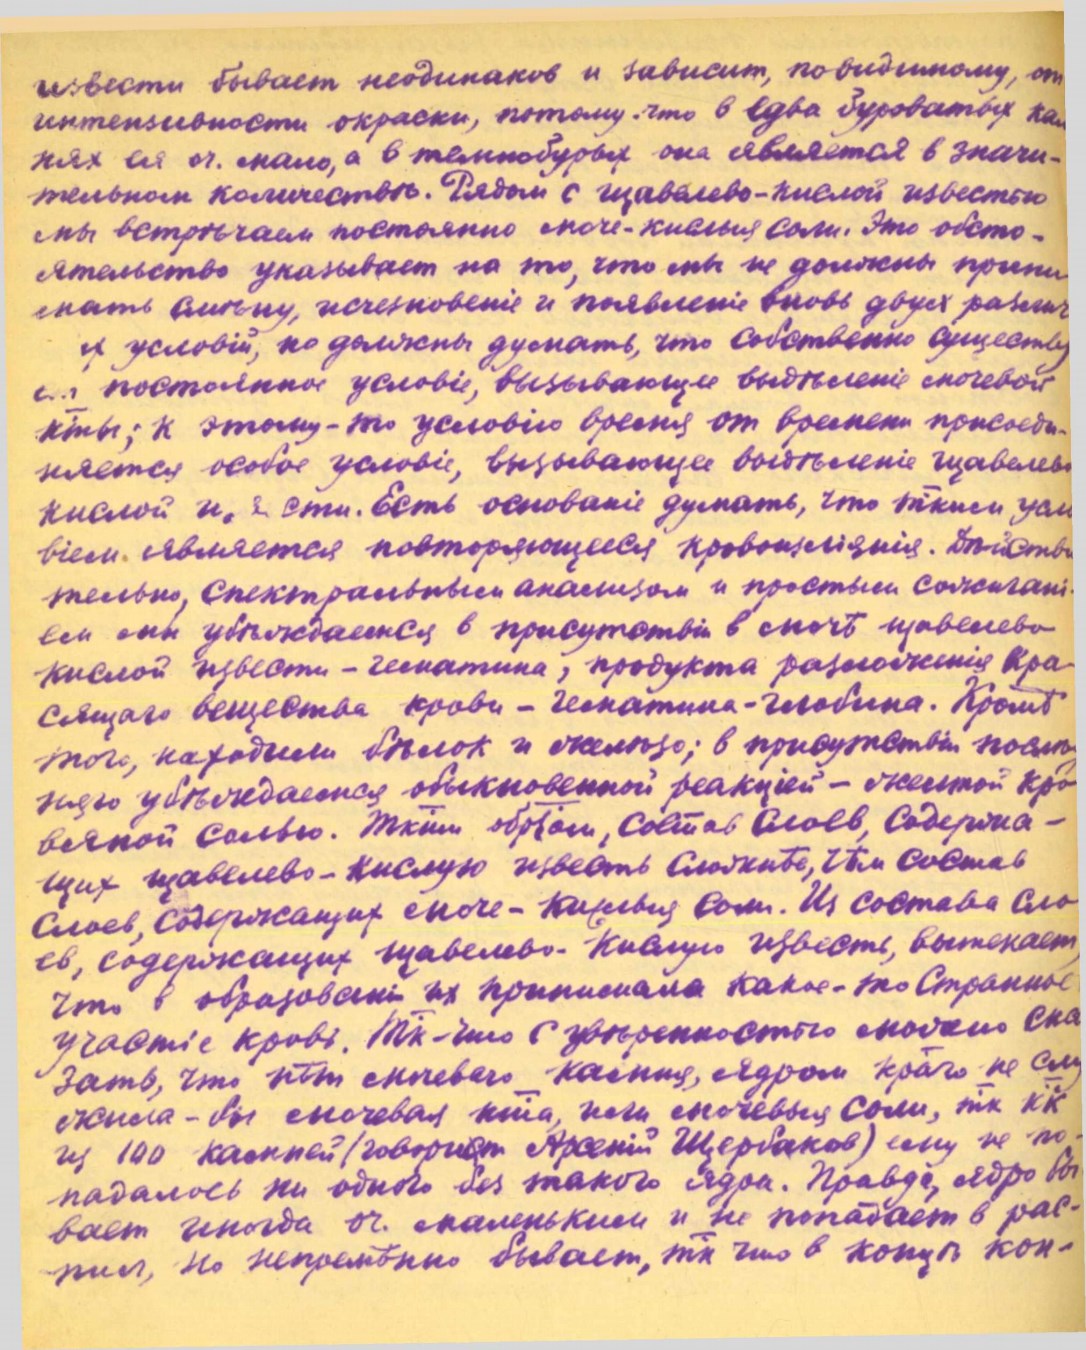 извести бывает неодинаков и зависит, повидимому, от
интенсивности окраски, потому что в едва буроватых кам
нях ея оч. мало, а в темнобурых она является в значи-
тельном количествѣ. Рядом с щавелево-кислой известью
мы встрѣчаем постоянно моче-кислыя соли. Это обсто-
ятельство указывает на то, что мы не должны прини
мать смѣну, исчезновеніе и появленіе вновь двух различ
х условій, но должны думать, что собственно существу
постоянное условіе, вызывающее выдѣленіе мочевой
к̅ты; к этому-то условію время от времени присоеди-
няется особое условіе, вызывающее выдѣленіе щавелево
кислой и сти. Есть основаніе думать, что т̅ким усло
віем является повторяющееся кровоизліянія. Дѣйстви
тельно, спектральным анализом и простым сожигані-
ем мы убѣждаемся в присутствіи в мочѣ щавелево
кислой извести – гематина, продукта разложенія кра-
сящаго вещества крови – гематина-глобина. Кромѣ
того, находили бѣлок и желѣзо; в присутствіи послѣд
няго убѣждаемся обыкновенной реакціей – желтой кро
вяной солью. Т̅ким обр̅зом, сост̅ав слоев, содержа-
щих щавелево-кислую известь сложнѣе, чѣм состав
слоев, содержащих моче-кислыя соли. Из состава сло
ев, содержащих щавелево-кислую известь, вытекает,
что в образованіи их принимала какое-то странное
участіе кровь. Т̅к-что с увѣренностью можно ска
зать, что нѣт мочевого камня, ядром к̅раго не слу
жила-бы мочевая к̅та, или мочевыя соли, т̅к к̅к
из 100 камней (говорит Арсеній Щербаков) ему не по-
падалось ни одного без такого ядра. Правда, ядро бы
вает иногда оч. маленьким и не попадает в рас-
пил, но непремѣнно бывает, т̅к что в концѣ кон-